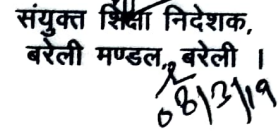 संयुक्त शिक्षा निदेशक,
बरेली मण्डल, बरेली ।
08/3/19